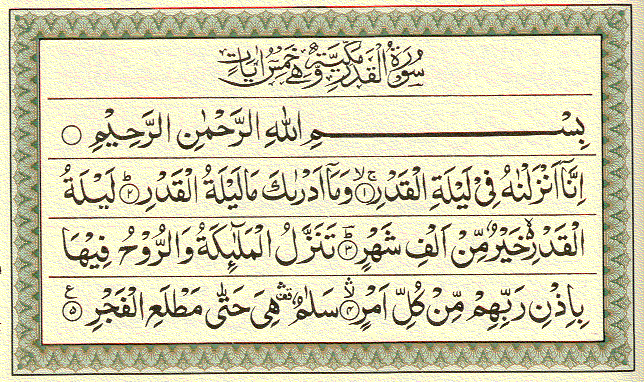 سُوْرَةُ الْقَدْرِ مَكِّيَّةٌ وَّهِيَ خَمْسُ اٰيَاتٍ
بِسْمِ اللهِ الرَّحْمٰنِ الرَّحِيْمِ ○
اِنَّآ اَنْزَلْنٰهُ فِيْ لَيْلَةِ الْقَدْرِ ۚۖ‏﴿۱﴾ وَمَآ اَدْرٰىكَ مَا لَيْلَةُ الْقَدْرِ ؕ‏﴿۲﴾ لَيْلَةُ
الْقَدْرِ ۙ خَيْرٌ مِّنْ اَلْفِ شَهْرٍ ؕ‏﴿۳﴾ تَنَزَّلُ الْمَلٰٓئِكَةُ وَالرُّوْحُ فِيْهَا
بِاِذْنِ رَبِّهِمْ مِّنْ كُلِّ اَمْرٍ ۙ‏﴿۴﴾ سَلٰمٌ ۛ هِيَ حَتّٰى مَطْلَعِ الْفَجْرِ ﴿۵﴾ ع